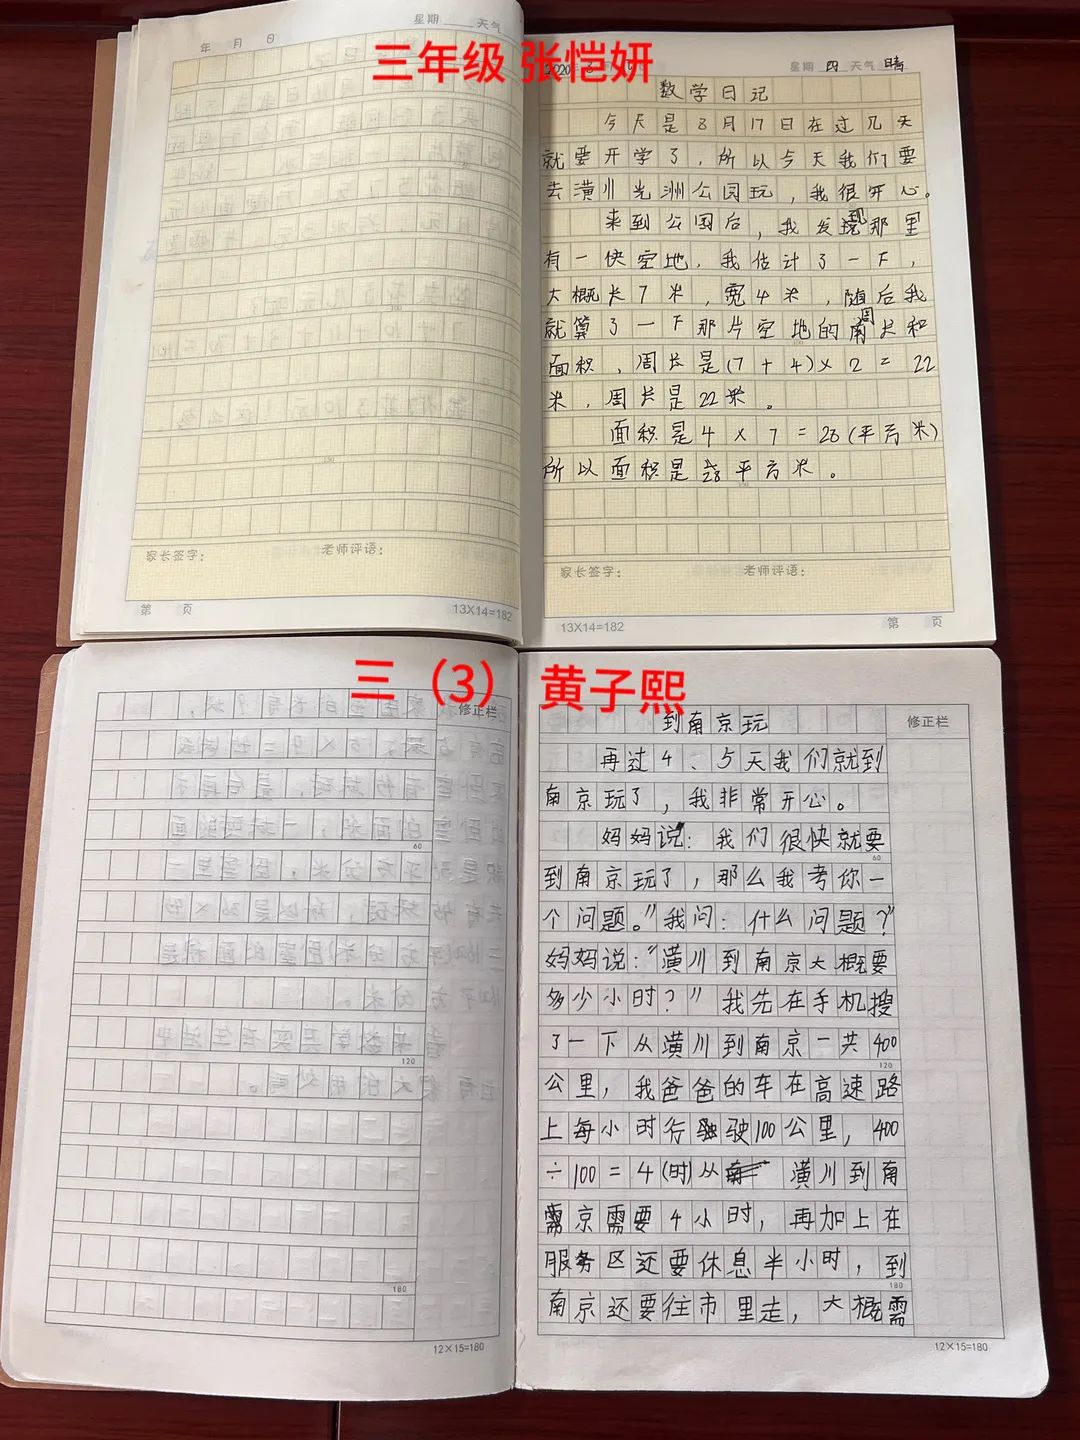 星期 天气
年 月 日
三年级 张恺妍
星期 四 天气 晴
数学日记
今天是8月17日在过几天
就要开学了，所以今天我们要
去潢川光洲公园玩，我很开心。
来到公园后，我发现那里
有一快空地，我估计了一下，
大概长7米，宽4米，随后我
就算了一下那片空地的周长和
面积，周长是(7+4)×2=22
米，周长是22米。
面积是4×7=28(平方米)
所以面积是28平方米。
家长签字： 老师评语：
第 页 13X14=182
家长签字： 老师评语：
13X14=182 第 页
三（3） 黄子熙
修正栏
到南京玩
修正栏
再过4、5天我们就到
南京玩了，我非常开心。
妈妈说：我们很快就要
到南京玩了，那么我考你一
个问题。”我问：什么问题？”
妈妈说：“潢川到南京大概要
多少小时？”我先在手机搜
了一下从潢川到南京一共400
公里，我爸爸的车在高速路
上每小时行驶100公里，400
÷100=4(时)从潢川到南
京需要4小时，再加上在
服务区还要休息半小时，到
南京还要往市里走，大概需
60
120
180
60
120
180
12×15=180
12×15=180